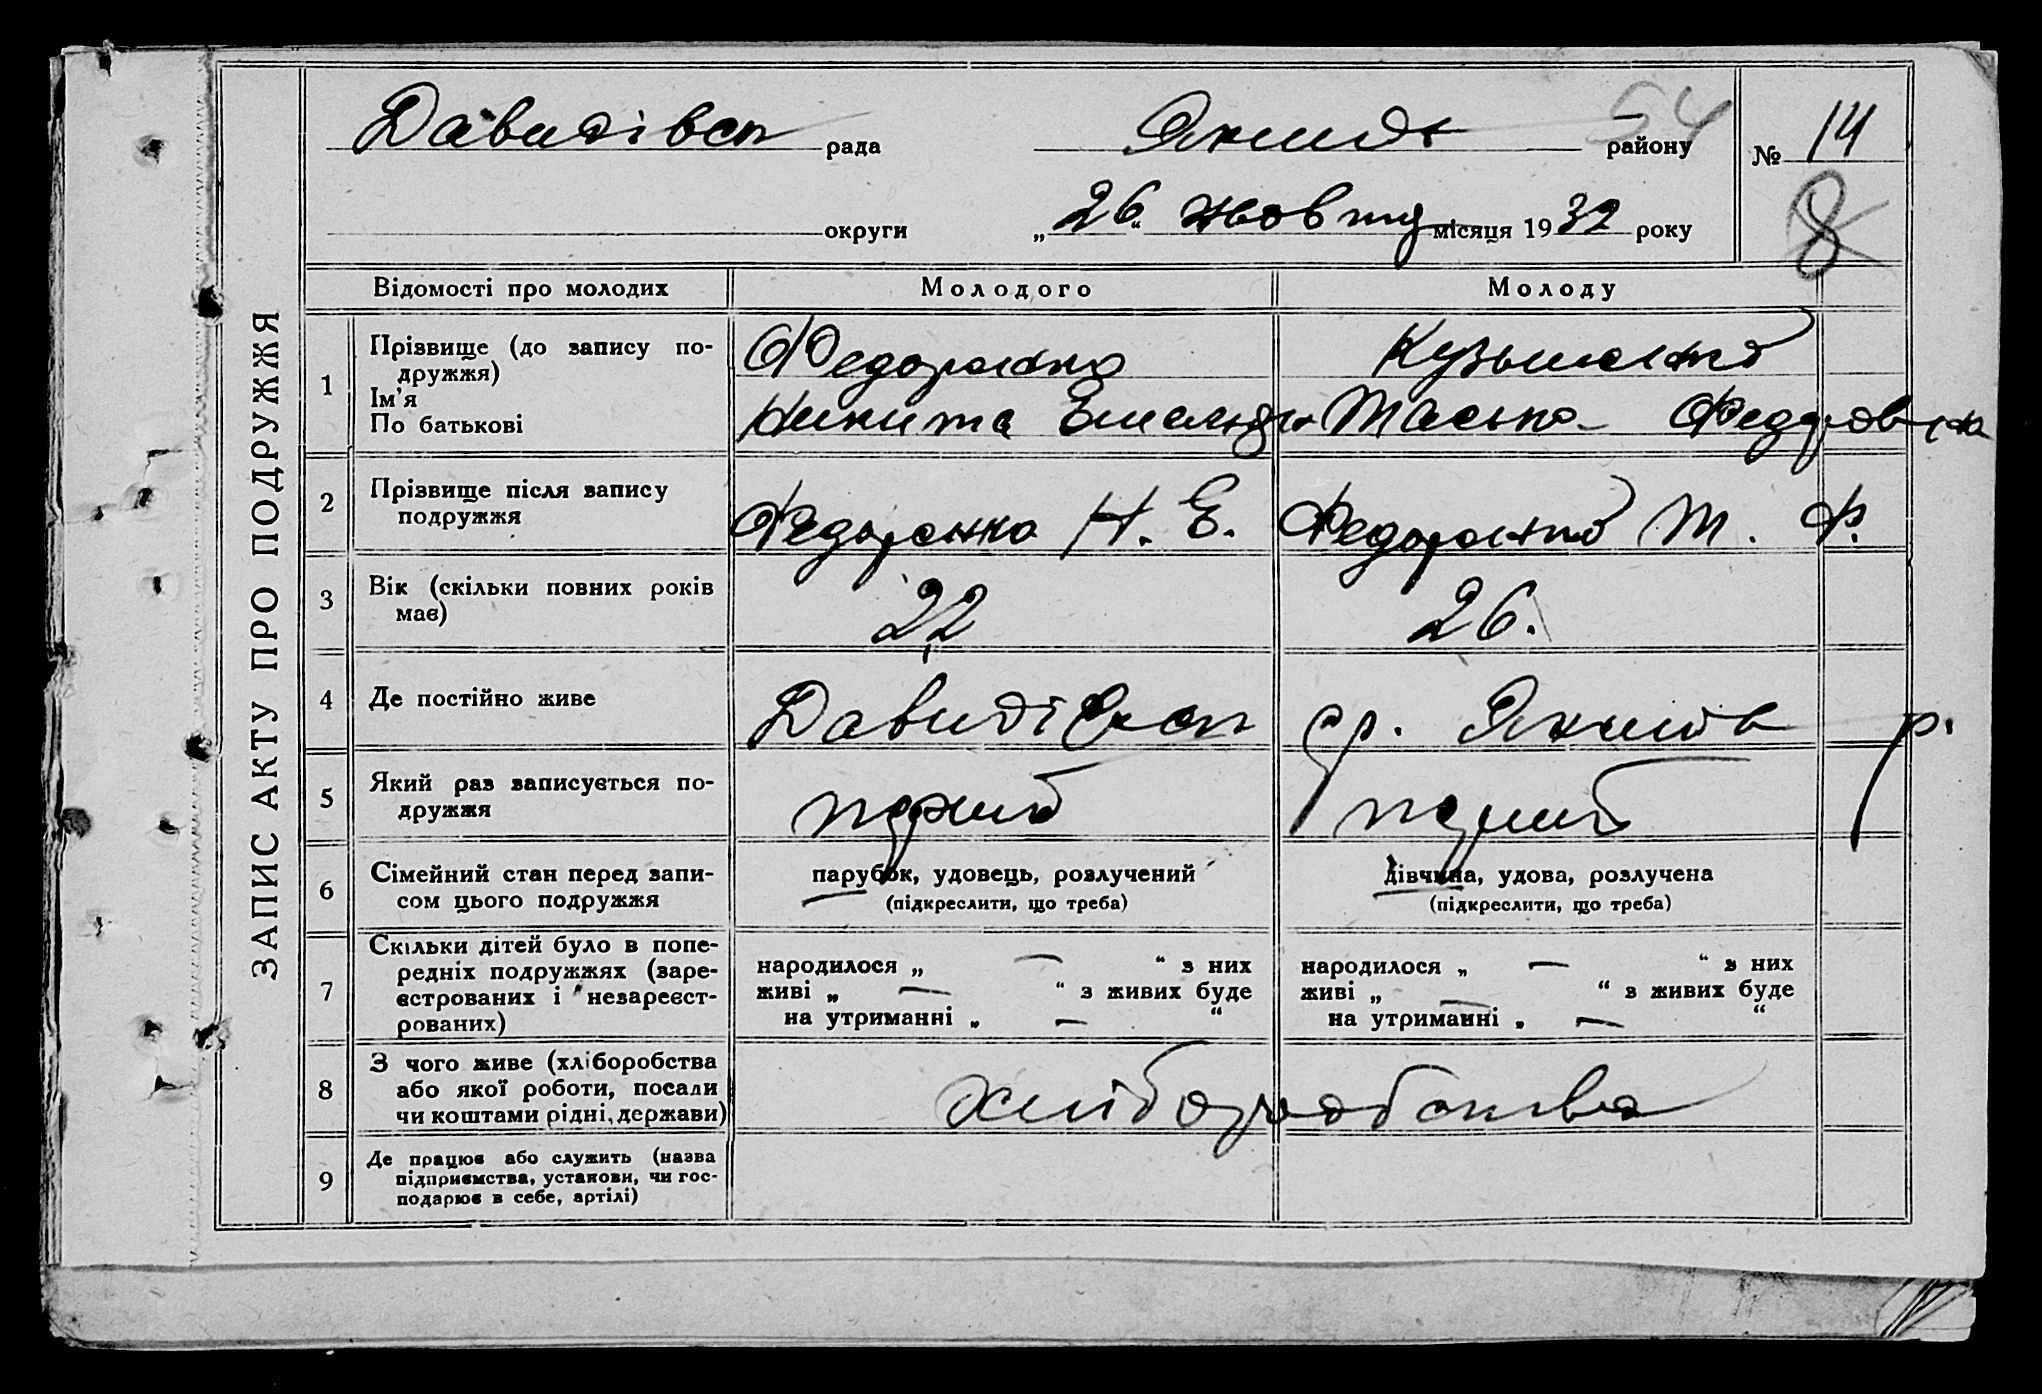 54
Давидівсп рада Якимів району № 14
округи „26“ жовтня місяця 1932 року
8
ЗАПИС АКТУ ПРО ПОДРУЖЖЯ
Відомості про молодих Молодого Молоду
1 Прізвище (до запису по-
дружжя)
Ім’я
По батькові
Федоренко Кузьменко
Никита Емельян Таська Федоровна
2 Прізвище після запису
подружжя
Федоренко Н. Е. Федоренко Т. Ф.
3 Вік (скільки повних років
має)
22 26.
4 Де постійно живе Давидівсп ср. Якимів р.
5 Який раз записується по-
дружжя
первий первий
6 Сімейний стан перед запи-
сом цього подружжя
парубок, удовець, розлучений дівчина, удова, розлучена
(підкреслити, що треба) (підкреслити, що треба)
7 Скільки дітей було в попе-
редніх подружжях (заре-
єстрованих і незареєст-
рованих)
народилося „ — “ з них народилося „ — “ з них
живі „ — “ з живих буде живі „ — “ з живих буде
на утриманні „ — “ на утриманні „ — “
8 З чого живе (хліборобства
або якої роботи, посади
чи коштами рідні, держави)
хліборобства
9 Де працює або служить (назва
підприємства, установи, чи гос-
подарює в себе, артілі)